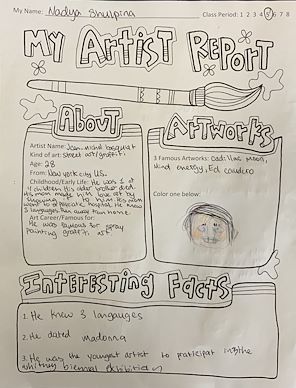 My Name: Nadya Shulpina
Class Period: 1 2 3 4 5 6 7 8
My Artist Report
About
Artist Name: Jean-Michel basquiat
Kind of art: street art/graffiti.
Age: 28
From: New york city US.
Childhood/Early Life: He was 1 of
4 children. His older brother died.
His mom made him love art by
to him. His mom
went to a hospital. He knew
3 languages. Ran away from home.
Art Career/Famous for:
He was famous for spray
painting graffiti art
Artworks
3 Famous Artworks: Cadillac Moon,
Mind energy, Ed
Color one below:
Interesting Facts
1. He knew 3 langauges
2. He dated Madonna
3. He was the youngest artist to participat in the
whitney biennial exhibition